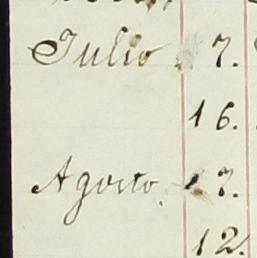 Julio 7.
16.
Agosto 7.
12.